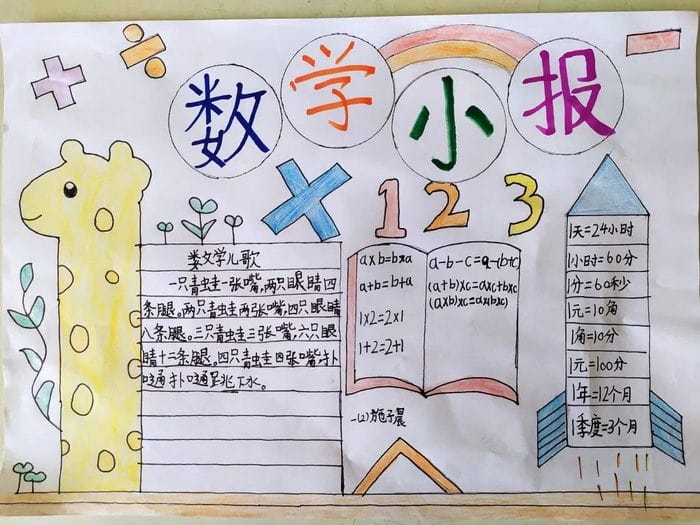 数学小报
1 2 3
娄文学儿歌
一只青蛙一张嘴,两只眼睛四
条腿。两只青蛙两张嘴,四只眼睛
八条腿。三只青蛙三张嘴,六只眼
睛十二条腿。四只青蛙四张嘴,扑
通扑通跳下水。
a×b=b×a
a+b=b+a
1×2=2×1
1+2=2+1
a-b-c=a-(b+c)
(a+b)×c=a×c+b×c
(a×b)×c=a×(b×c)
一(2)施子晨
1天=24小时
1小时=60分
1分=60秒
1元=10角
1角=10分
1元=100分
1年=12个月
1季度=3个月